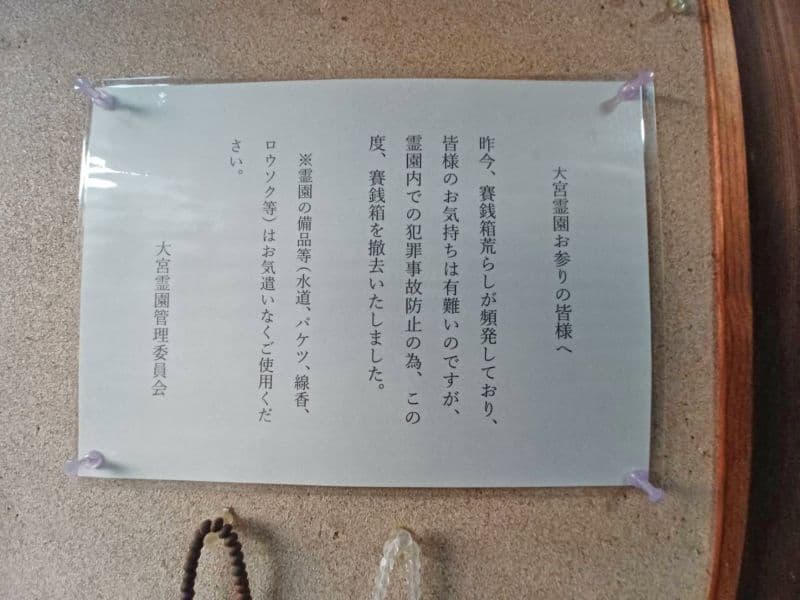 大宮霊園お参りの皆様へ
昨今、賽銭箱荒らしが頻発しており、
皆様のお気持ちは有難いのですが、
霊園内での犯罪事故防止の為、この
度、賽銭箱を撤去いたしました。
※霊園の備品等（水道、バケツ、線香、
ロウソク等）はお気遣いなくご使用くだ
さい。
大宮霊園管理委員会